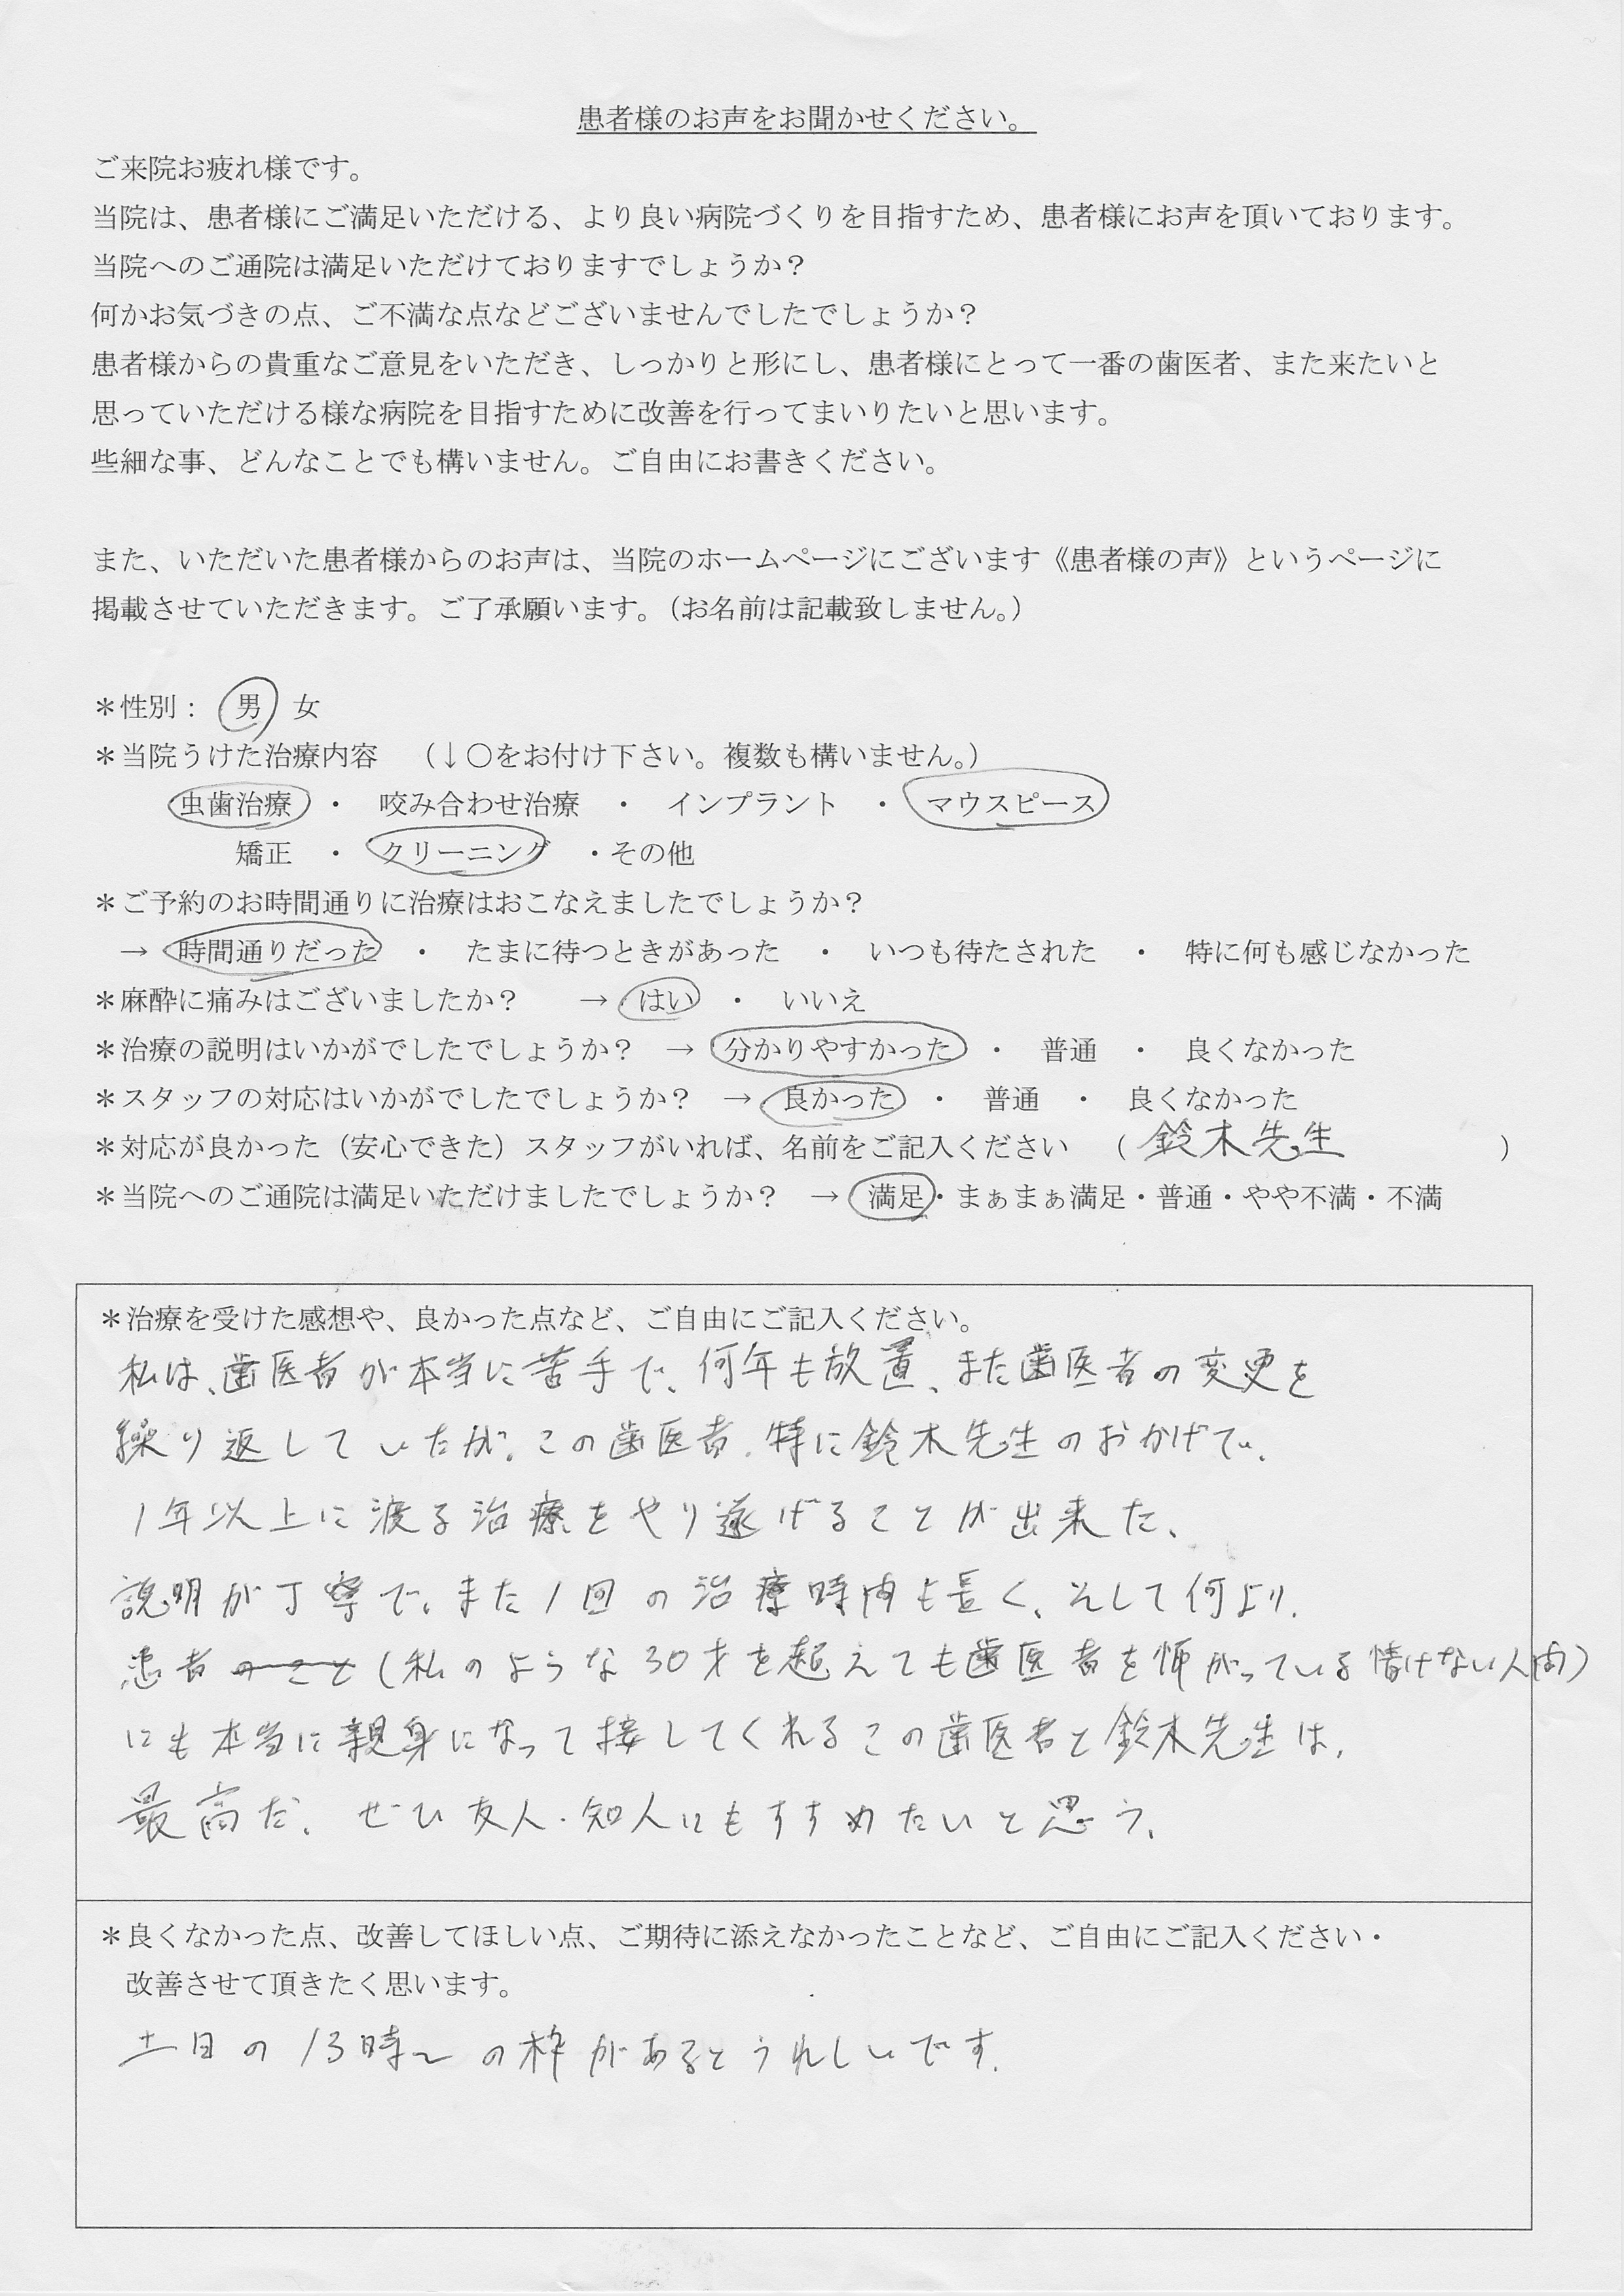 患者様のお声をお聞かせください。
ご来院お疲れ様です。
当院は、患者様にご満足いただける、より良い病院づくりを目指すため、患者様にお声を頂いております。
当院へのご通院は満足いただけておりますでしょうか？
何かお気づきの点、ご不満な点などございませんでしたでしょうか？
患者様からの貴重なご意見をいただき、しっかりと形にし、患者様にとって一番の歯医者、また来たいと
思っていただける様な病院を目指すために改善を行ってまいりたいと思います。
些細な事、どんなことでも構いません。ご自由にお書きください。
また、いただいた患者様からのお声は、当院のホームページにございます《患者様の声》というページに
掲載させていただきます。ご了承願います。（お名前は記載致しません。）
＊性別： 男 女
＊当院うけた治療内容 （↓○をお付け下さい。複数も構いません。）
虫歯治療 ・ 咬み合わせ治療 ・ インプラント ・ マウスピース
矯正 ・ クリーニング ・その他
＊ご予約のお時間通りに治療はおこなえましたでしょうか？
→ 時間通りだった ・ たまに待つときがあった ・ いつも待たされた ・ 特に何も感じなかった
＊麻酔に痛みはございましたか？ → はい ・ いいえ
＊治療の説明はいかがでしたでしょうか？ → 分かりやすかった ・ 普通 ・ 良くなかった
＊スタッフの対応はいかがでしたでしょうか？ → 良かった ・ 普通 ・ 良くなかった
＊対応が良かった（安心できた）スタッフがいれば、名前をご記入ください （ 鈴木先生 ）
＊当院へのご通院は満足いただけましたでしょうか？ → 満足・まぁまぁ満足・普通・やや不満・不満
＊治療を受けた感想や、良かった点など、ご自由にご記入ください。
私は、歯医者が本当に苦手で、何年も放置、また歯医者の変更を
繰り返していたが、この歯医者、特に鈴木先生のおかげで、
1年以上に渡る治療をやり遂げることが出来た、
説明が丁寧で、また1回の治療時間も長く、そして何より、
患者のこと（私のような30才を超えても歯医者を怖がっている情けない人間）
にも本当に親身になって接してくれるこの歯医者と鈴木先生は、
最高だ、ぜひ友人・知人にもすすめたいと思う、
＊良くなかった点、改善してほしい点、ご期待に添えなかったことなど、ご自由にご記入ください・
改善させて頂きたく思います。
土日の13時〜の枠があるとうれしいです．